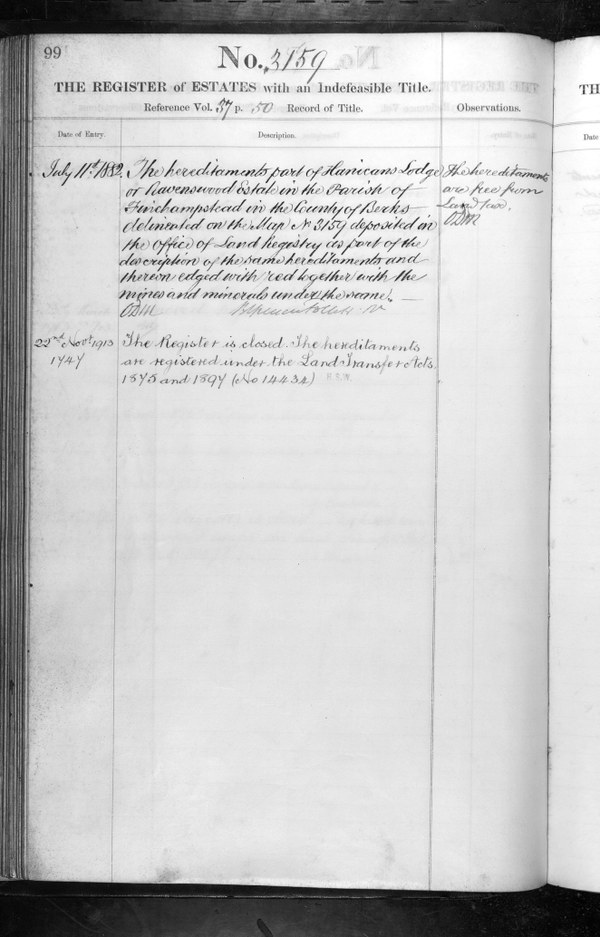 99
No. 3159
THE REGISTER of ESTATES with an Indefeasible Title.
Reference Vol. 37 p. 50 Record of Title.
Observations.
Date of Entry.
Description.
July 11th 1882.
The hereditaments part of Hanicans Lodge
or Ravenswood Estate in the Parish of
Finchampstead in the County of Berks
delineated on the Map No 3159 deposited in
the Office of Land Registry as part of the
description of the same hereditaments and
thereon edged with red together with the
mines and minerals under the same.
The hereditaments
are free from
Land tax.
22nd Novr 1913
1747
The Register is closed. The hereditaments
are registered under the Land Transfer Acts
1875 and 1897 (No 14434)
TH
Date